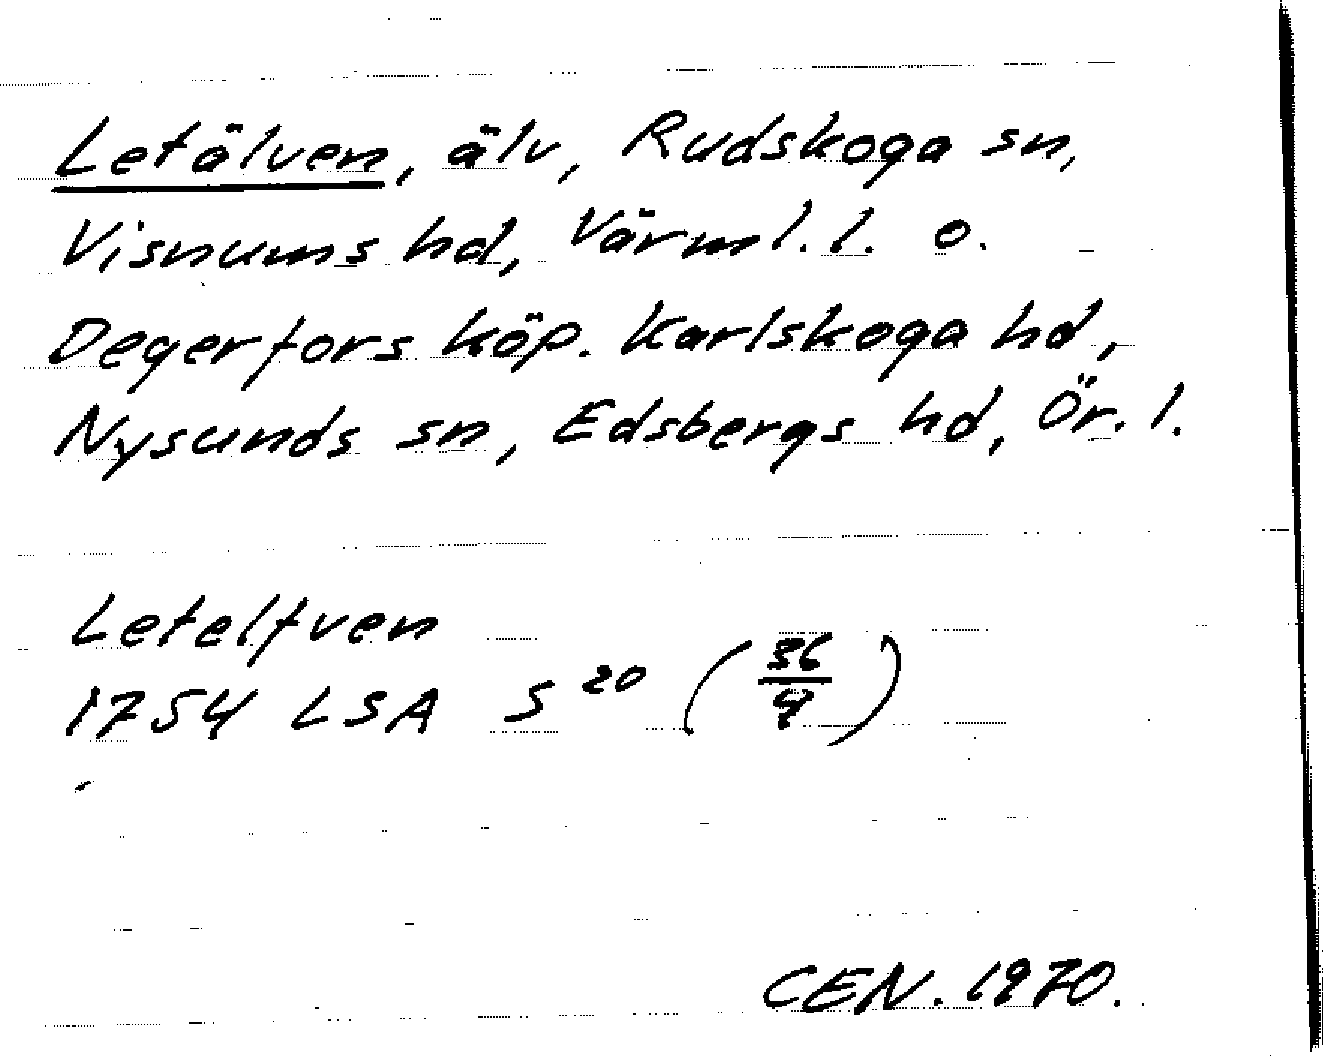 Letälven, älv, Rudskoga sn,
Visnums hd, Värml. l. o.
Degerfors köp. Karlskoga hd,
Nysunds sn, Edsbergs hd, Ör. l.
Letelfven
1754 LSA S 20 (36/4)
CEN. 1970.